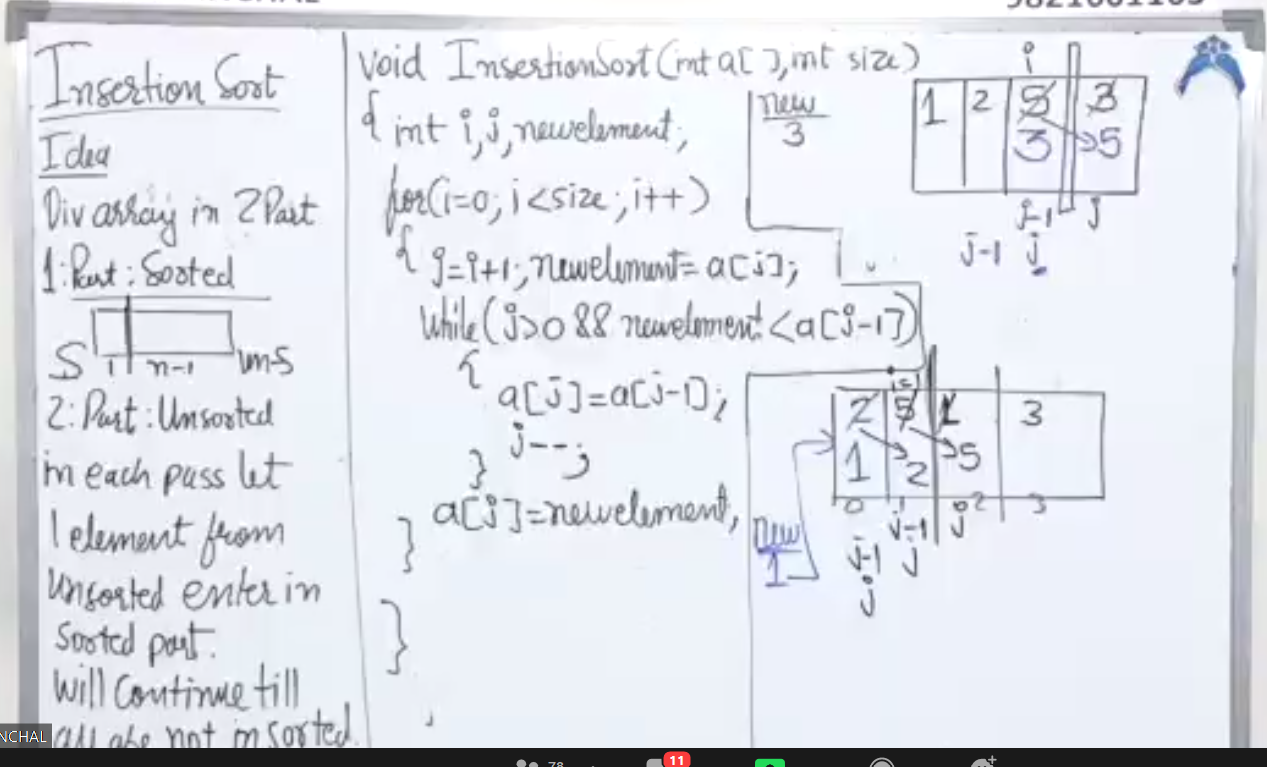 Insertion Sort
Idea
Div array in 2 Part
1: Part : Sorted
S 1 n-1 un-S
2: Part : Unsorted
in each pass let
1 element from
Unsorted enter in
Sorted part.
Will Continue till
all are not in sorted.
void InsertionSort(int a[ ], int size)
{ int i, j, newelement;
for(i=0; i<size; i++)
{ j=i+1; newelement= a[j];
while(j>0 && newelement<a[j-1])
{
a[j]=a[j-1];
j--;
}
a[j]=newelement;
}
}
new
3
i
1 2 5 3
3 5
j-1 j
j-1 j
2 5 1 3
1 2 5
0 1 2 3
j-1 j
j-1 j
j
new
1
NCHAL
78
11